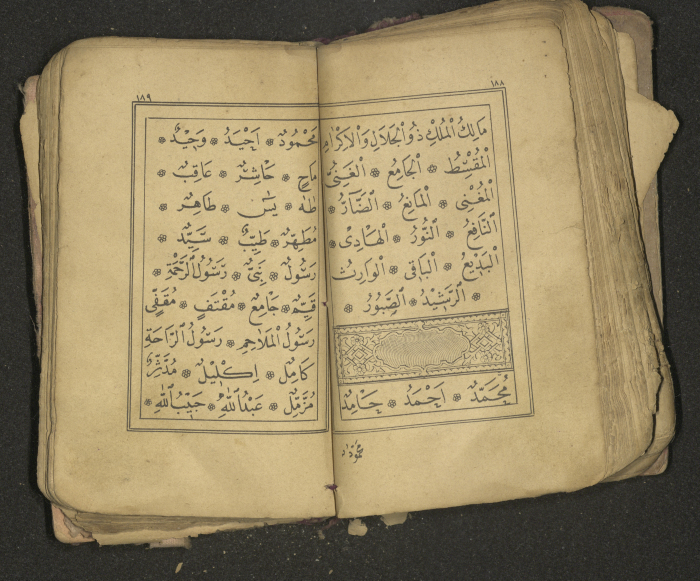 ١٨٨
مَالِكُ الْمُلْكِ ذُو الْجَلَالِ وَالْاِكْرَامِ
الْمُقْسِطُ ❁ الْجَامِعُ ❁ الْغَنِىُّ
الْمُغْنِى ❁ الْمَانِعُ ❁ الضَّآرُّ
النَّافِعُ ❁ النُّورُ ❁ الْهَادِى
الْبَدِيعُ ❁ الْبَاقِى ❁ الْوَارِثُ
❁ الرَّشِيدُ ❁ الصَّبُورُ ❁
مُحَمَّدٌ ❁ اَحْمَدُ ❁ حَامِدٌ
مَحْمُودٌ
١٨٩
مَحْمُودٌ ❁ اَحِيدُ ❁ وَحِيدٌ ❁
مَاحٍ ❁ حَاشِرٌ ❁ عَاقِبٌ ❁
طٰهٰ ❁ يٰسٓ ❁ طَاهِرٌ ❁
مُطَهَّرٌ ❁ طَيِّبٌ ❁ سَيِّدٌ ❁
رَسُولٌ ❁ نَبِىٌّ ❁ رَسُولُ الرَّحْمَةِ ❁
قَيِّمٌ ❁ جَامِعٌ ❁ مُقْتَفٍ ❁ مُقَفًّى
رَسُولُ الْمَلَاحِمِ ❁ رَسُولُ الرَّاحَةِ
كَامِلٌ ❁ اِكْلِيلٌ ❁ مُدَّثِّرٌ
مُزَّمِّلٌ ❁ عَبْدُ اللّٰهِ ❁ حَبِيبُ اللّٰهِ ❁